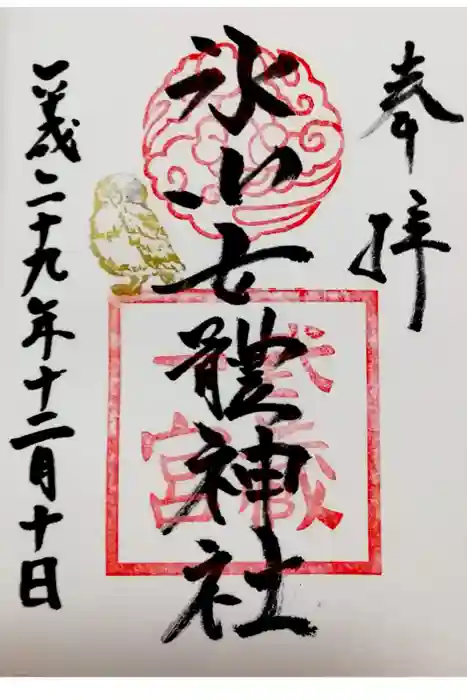 奉拝
氷川女體神社
武蔵
一宮
平成二十九年十二月十日